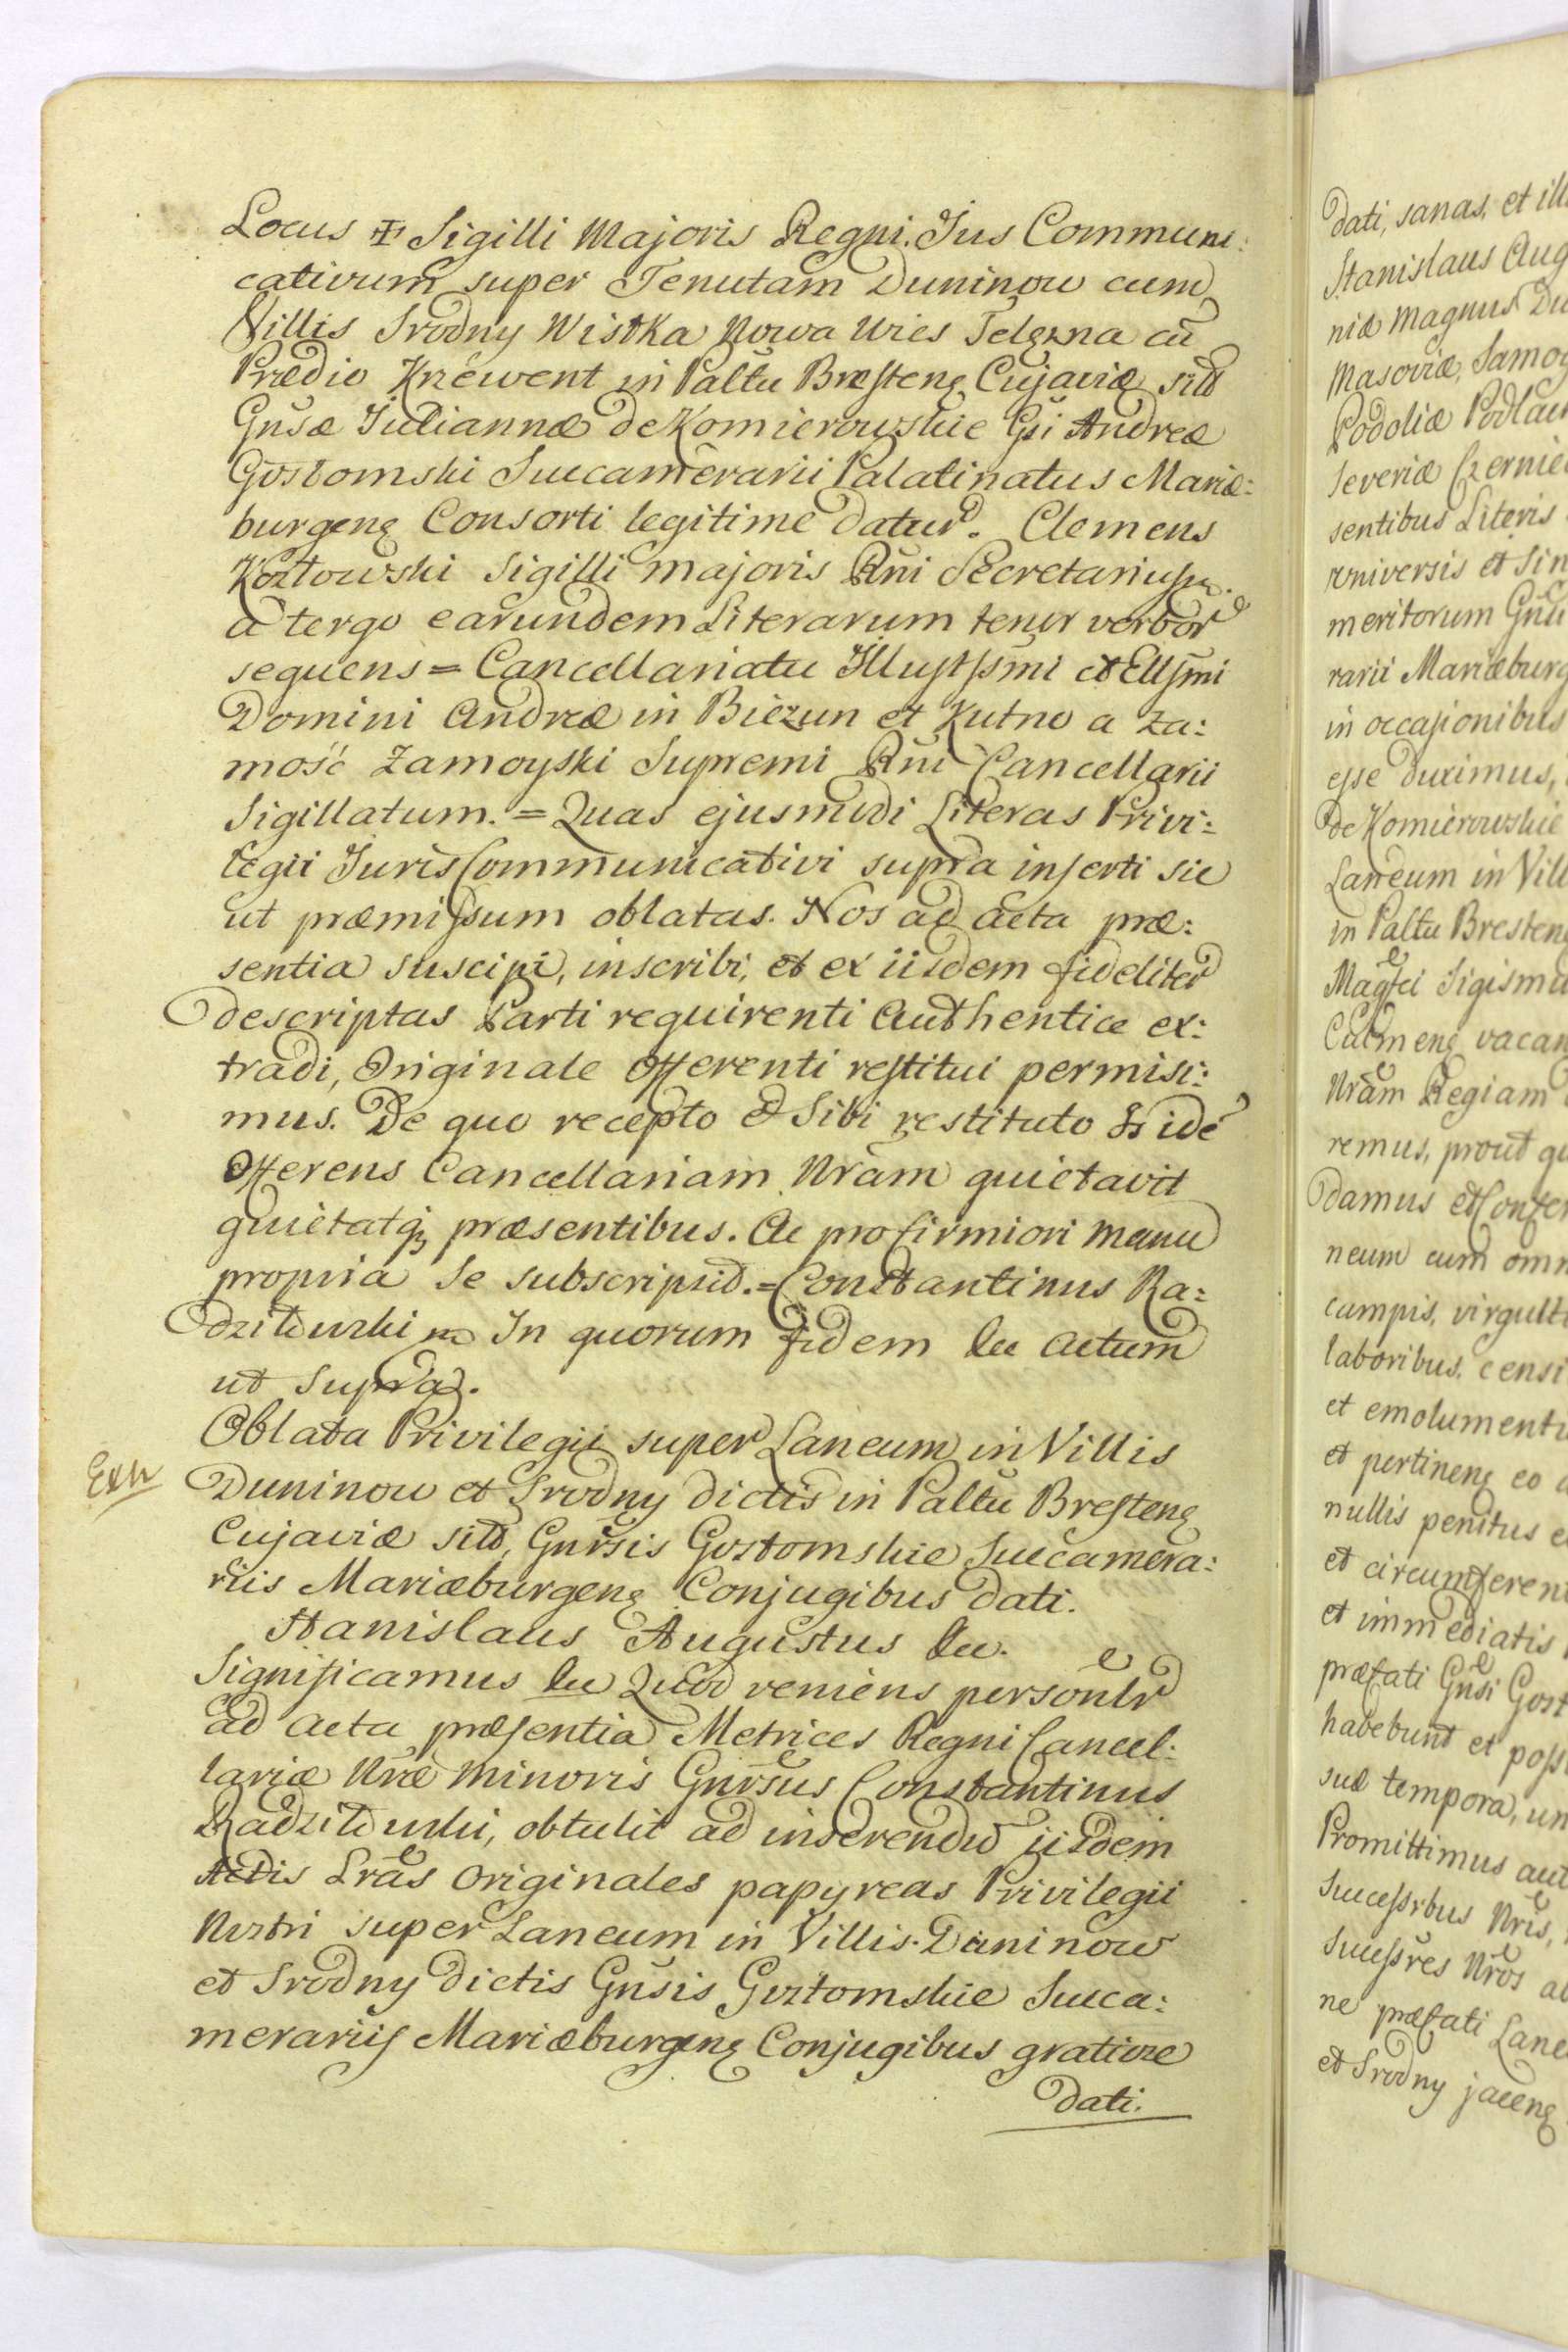 Locus ✠ Sigilli Majoris Regni. Jus Communi:
cativum super Tenutam Duninow cum
Villis Srodny Wistka Nowa Wies Telężna cū
Prædio Krzewent in Palttu Brestenę Cujaviæ sitis
Gnsæ Juliannæ de Komierowskie Gsi Andreæ
Gostomski Succamerarii Palatinatus Mariæ:
burgenę Consorti legitime datur. Clemens
Kozłowski Sigilli majoris Rni Secretarius
a tergo earundem Literarum tenor verbor
sequens = Cancellariatu Illustssmi et Ellsmi
Domini Andreæ in Biezun et Kutno a Za:
mość Zamoyski Supremi Rni Cancellarii
Sigillatum. = Quas ejusmodi Literas Privi:
legii Juris Communicativi supra inserti sic
ut præmissum oblatas. Nos ad acta præ:
sentia suscipi, inscribi, et ex iisdem fideliter
descriptas Parti requirenti Authentice ex:
tradi, Originale Offerenti restitui permisi:
mus. De quo recepto & Sibi restituto Is idē
Offerens Cancellariam Nrām quietavit
quietatq; præsentibus. Ac pro firmiori manu
propria Se subscripsit. = Constantinus Ra:
dziłłowski In quorum fidem &c Actum
ut Supra.
Oblata Privilegii super Laneum in Villis
Exn Duninow et Srodny dictis in Palttu Brestenę
Cujaviæ sito, Gnrsis Gostomskie Succamera:
riis Mariæburgenę Conjugibus dati.
Stanislaus Augustus &c.
Significamus &c Quod veniens personlr
ad acta præsentia Metrices Regni Cancel:
lariæ Nræ Minoris Gnrsus Constantinus
Radziłłowski, obtulit ad inserendū iisdem
Actis Lrās Originales papyreas Privilegii
Nostri super Laneum in Villis Duninow
et Srodny dictis Gnsis Gostomskie Succa:
merariis Mariæburgenę Conjugibus gratiose
dati.
dati, sanas, et ill
Stanislaus Aug
niæ Magnus Du
Masoviæ, Samog
Podoliæ Podlach
Severiæ Czernie
sentibus Literis
Universis et Sin
meritorum Gnsi
rarii Mariæburg
in occasionibus
esse duximus,
de Komierowskie
Laneum in Vill
in Palttu Bresten
Magfci Sigismu
Culmenę vacan
Nrām Regiam
remus, prout qu
damus et Confer
neum cum omn
campis, virgult
laboribus, censi
et emolument
et pertinenę eo
nullis penitus e
et circumferen
et immediatis
præfati Gnsi Gost
habebunt et poss
suæ tempora, un
Promittimus aut
Successrbus Nris,
Successres Nros
ne præfati Lane
et Srodny jacenę